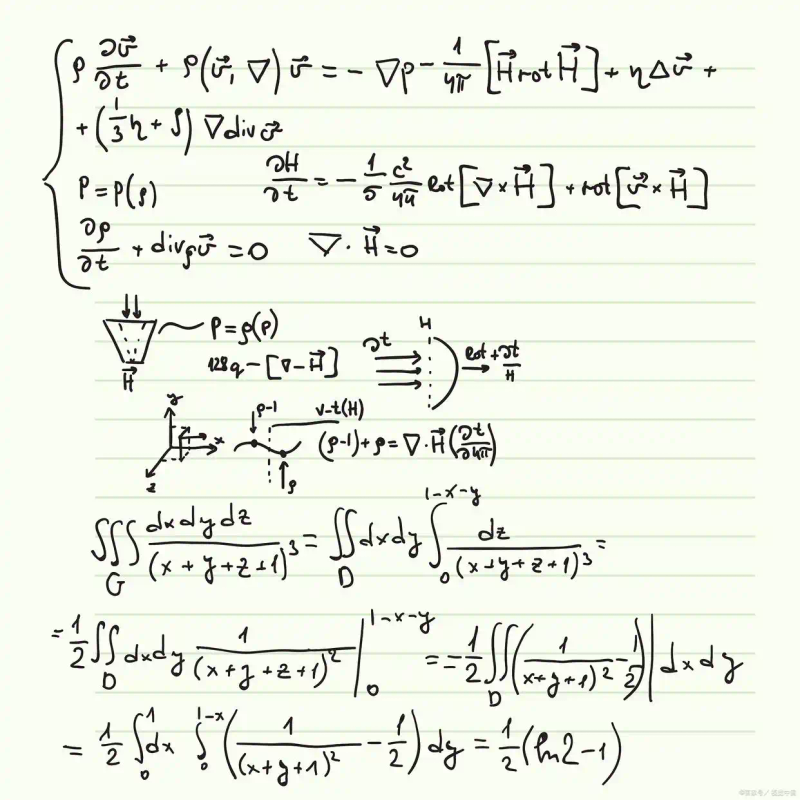 ρ ∂v⃗/∂t + ρ(v⃗, ∇) v⃗ = - ∇p - 1/4π [H⃗ rot H⃗] + η Δ v⃗ +
+ (1/3 η + ζ) ∇ div v⃗
P = P(ρ) ∂H/∂t = - 1/σ c²/4π rot [∇ × H⃗] + rot [v⃗ × H⃗]
∂ρ/∂t + div ρv⃗ = 0 ∇ · H⃗ = 0
P = ρ(p)
128q - [∇ - H⃗]
H⃗
∂t H rot + ∂t/H
y x z
ρ-1 v-t(H)
(ρ-1) + ρ = ∇ · H⃗ (∂t/∂4π)
ρ
∭_G dx dy dz/(x + y + z + 1)³ = ∬_D dx dy ∫_0^{1-x-y} dz/(x+y+z+1)³ =
= 1/2 ∬_D dx dy 1/(x + y + z + 1)² |_0^{1-x-y} = - 1/2 ∬_D (1/(x+y+1)² - 1/2)| dx dy
= 1/2 ∫_0^1 dx ∫_0^{1-x} (1/(x+y+1)² - 1/2) dy = 1/2 (ln2-1)